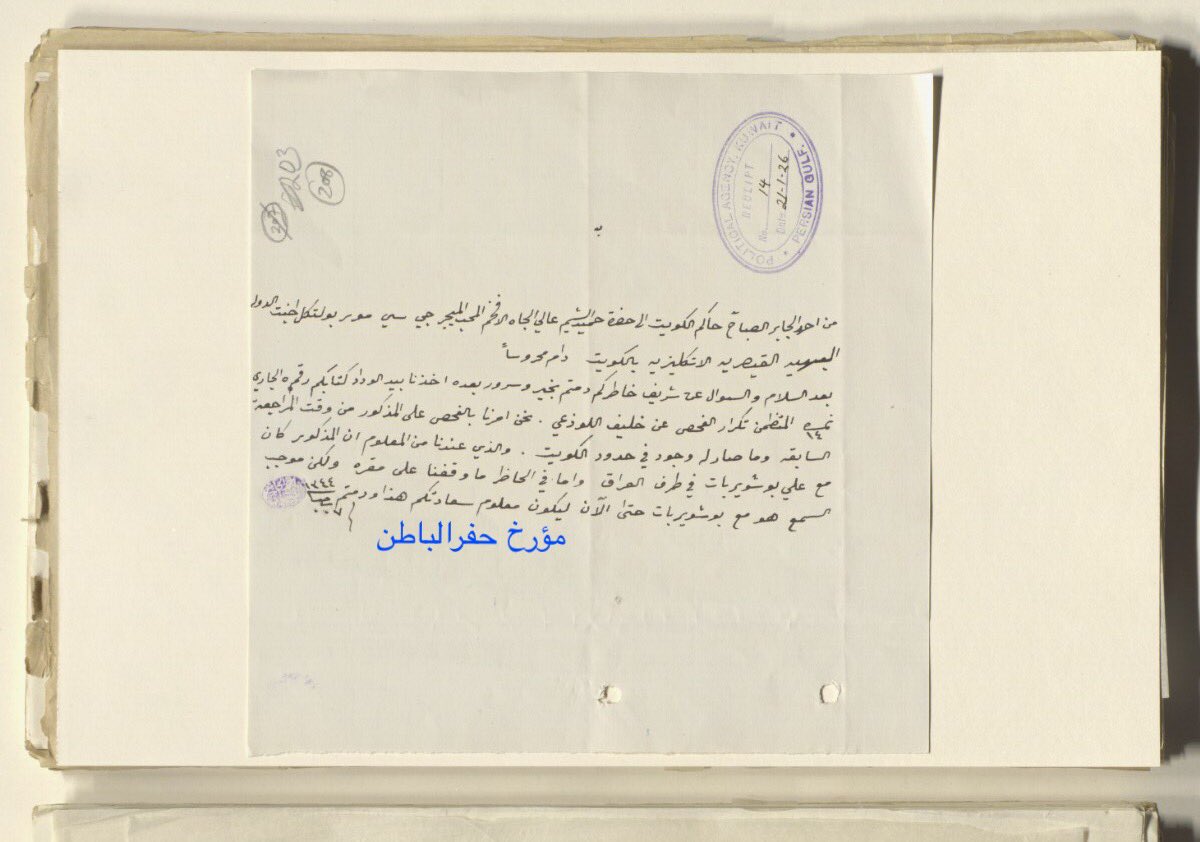 POLITICAL AGENCY, KUWAIT
PERSIAN GULF.
RECEIPT
No. 14
Date 21-1-26
203
208
من احمد الجابر الصباح حاكم الكويت الى حضرة حميد الشيم عالي الجاه الافخم المحب الميجر جي سي مور بولتكل اجنت الدولة
البهيه القيصريه الانكليزيه بالكويت دام محروساً
بعد السلام والسوال عن شريف خاطركم دمتم بخير وسرور بعده اخذنا بيد الوداد كتابكم رقم ٥ الجاري
نمره ١٤ المتظمن تكرار الفحص عن خليف اللوذعي . نحن امرنا بالفحص على المذكور من وقت المراجعة
السابقه وما صار له وجود في حدود الكويت . والذي عندنا من المعلوم ان المذكور كان
مع علي بوشويربات في طرف العراق واما في الحاظر ما وقفنا على مقره ولكن موجب
السمع هو مع بوشويربات حتى الآن ليكون معلوم سعادتكم هذا ودمتم
١٣٤٤
مؤرخ حفرالباطن